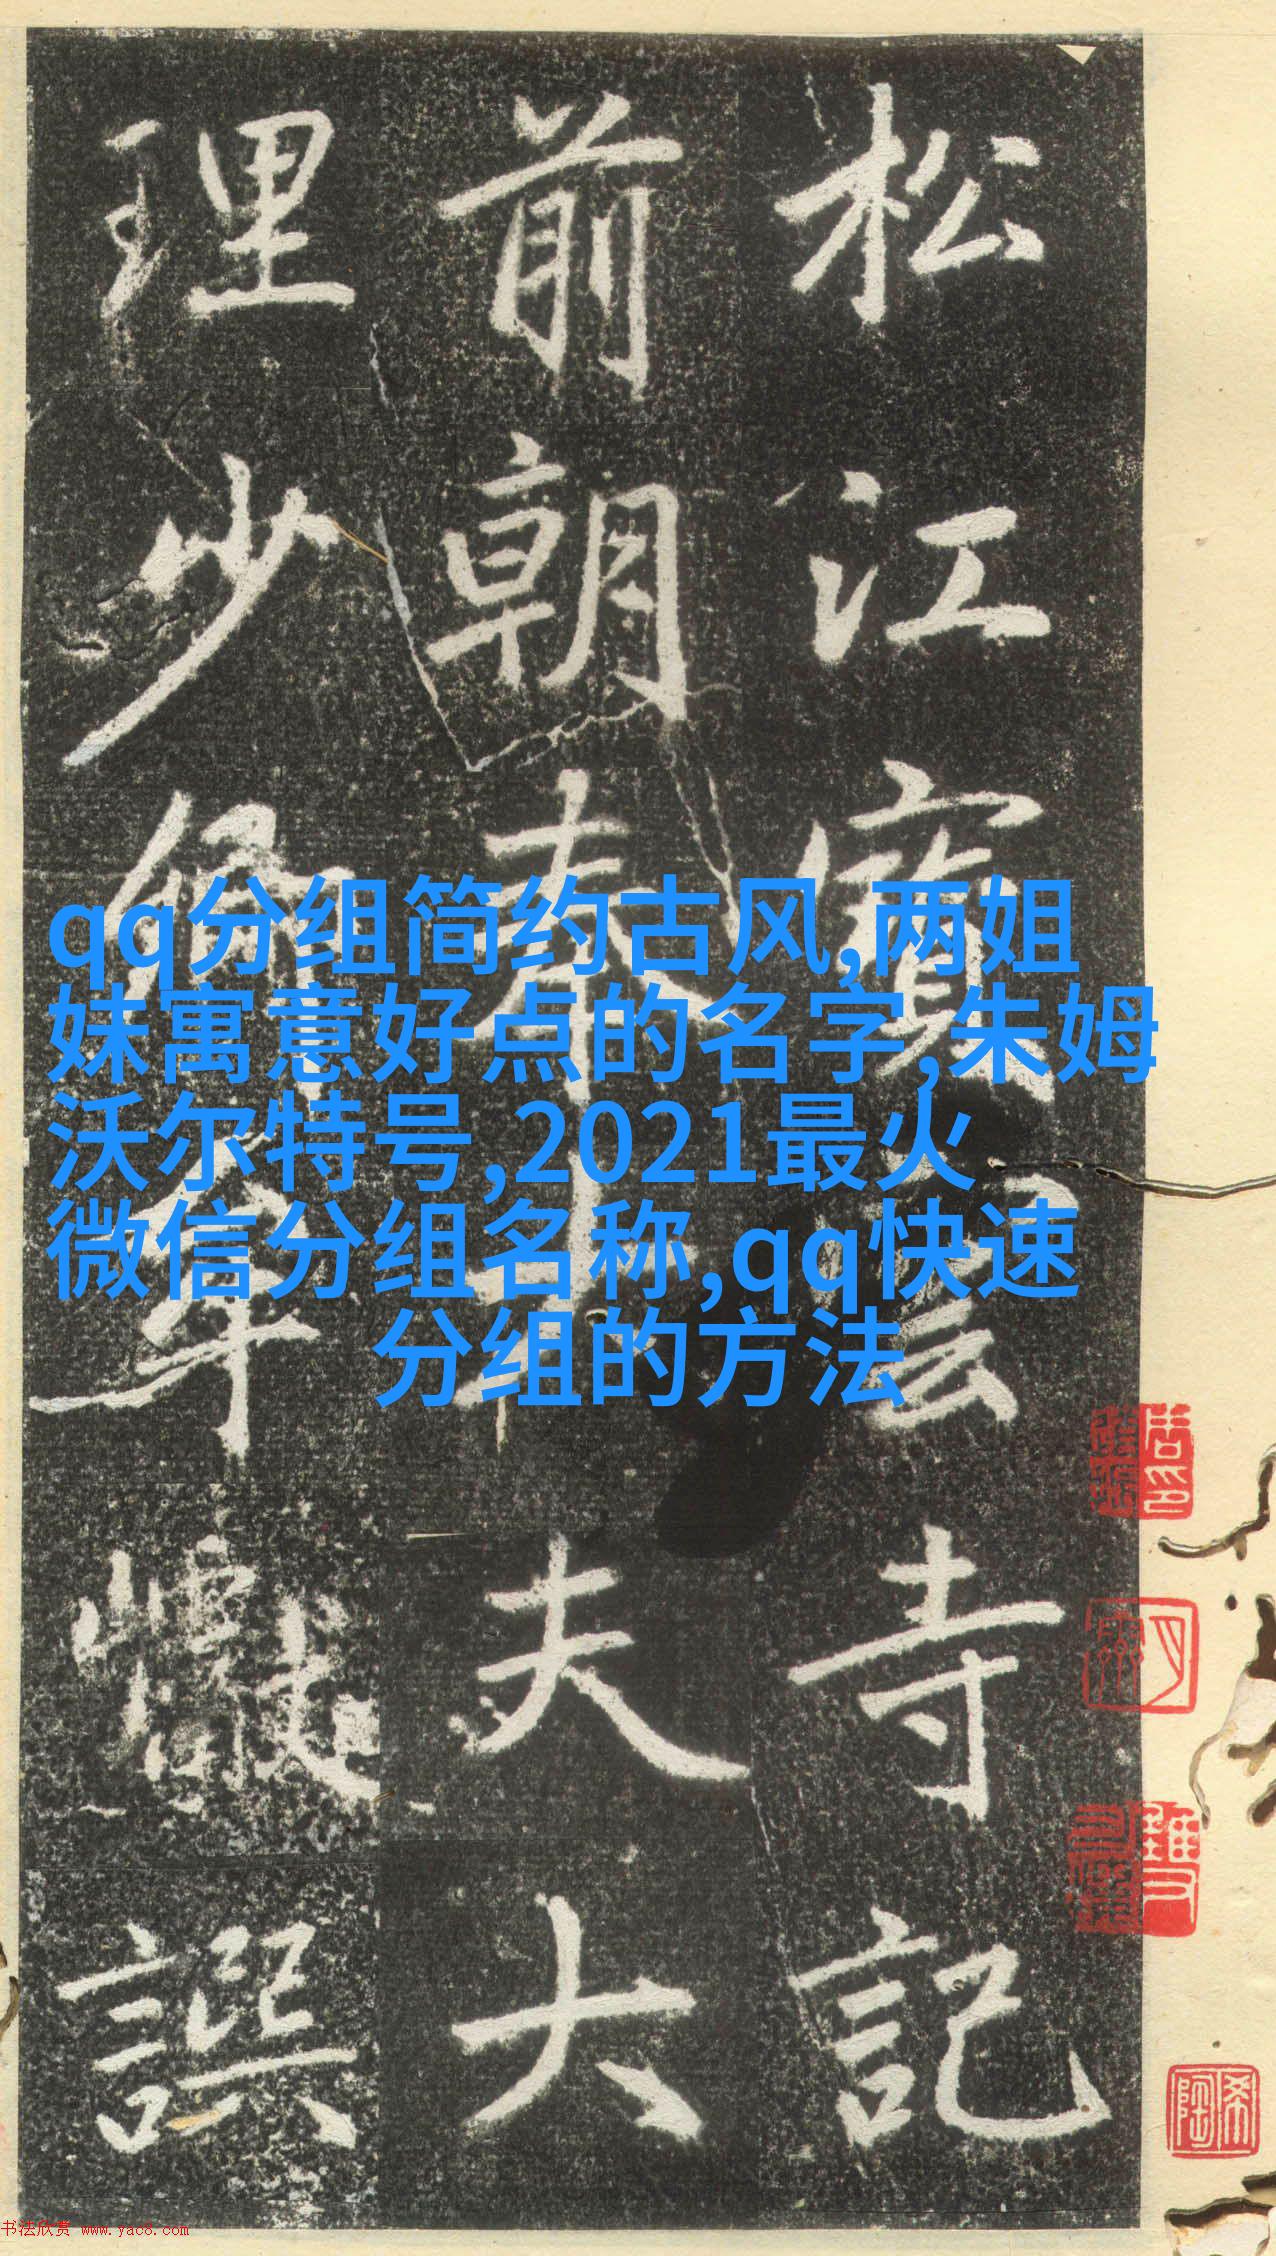 松江寶雲寺記
前朝奉大夫大
理少卿牟巘譔
qq分组简约古风,两姐
妹寓意好点的名字,朱姆
沃尔特号,2021最火
微信分组名称,qq快速
分组的方法
书法欣赏 www.yac8.com